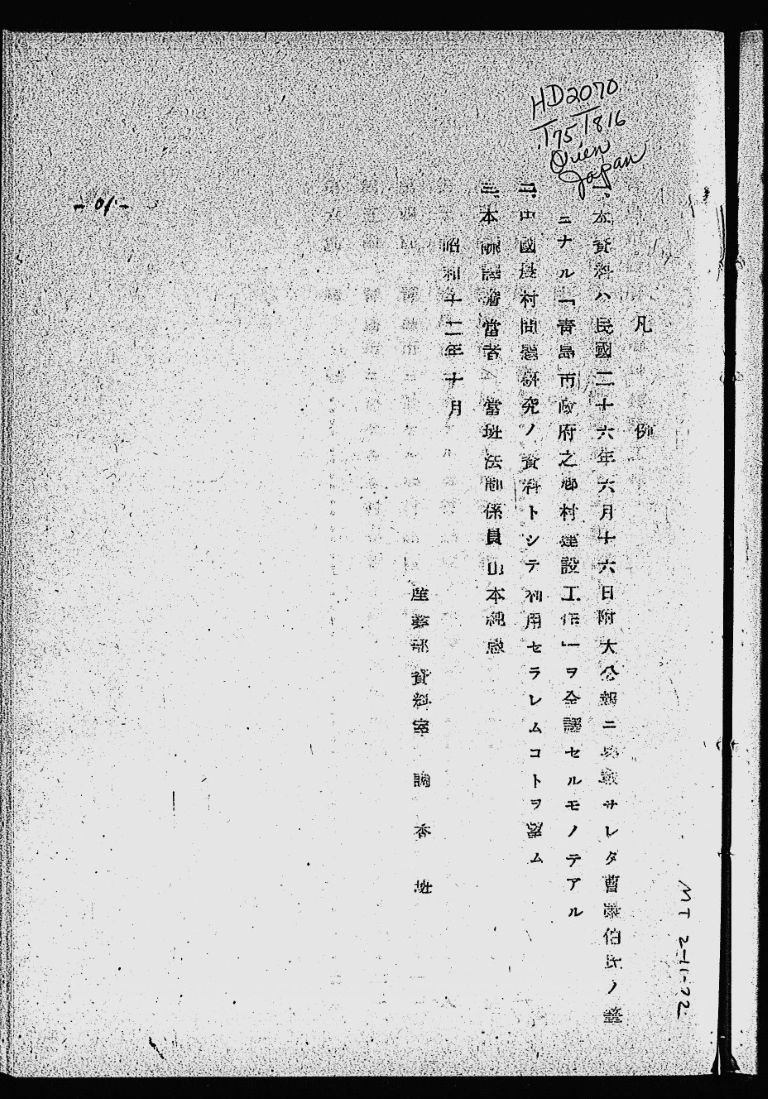 HD2070
.I75I816
Orien
Japan
凡例
一、本資料ハ民國二十六年六月十六日附大公報ニ サレタ曹 伯氏ノ
ニナル「青島市政府之鄉村建設工作」ヲ全譯セルモノテアル
二、中國農村問題研究ノ資料トシテ利用セラレムコトヲ望ム
三、本飜譯擔當者ハ當班法制係員山本純愚
昭和十二年十月
產業部資料室調査班
MT 2-11-72